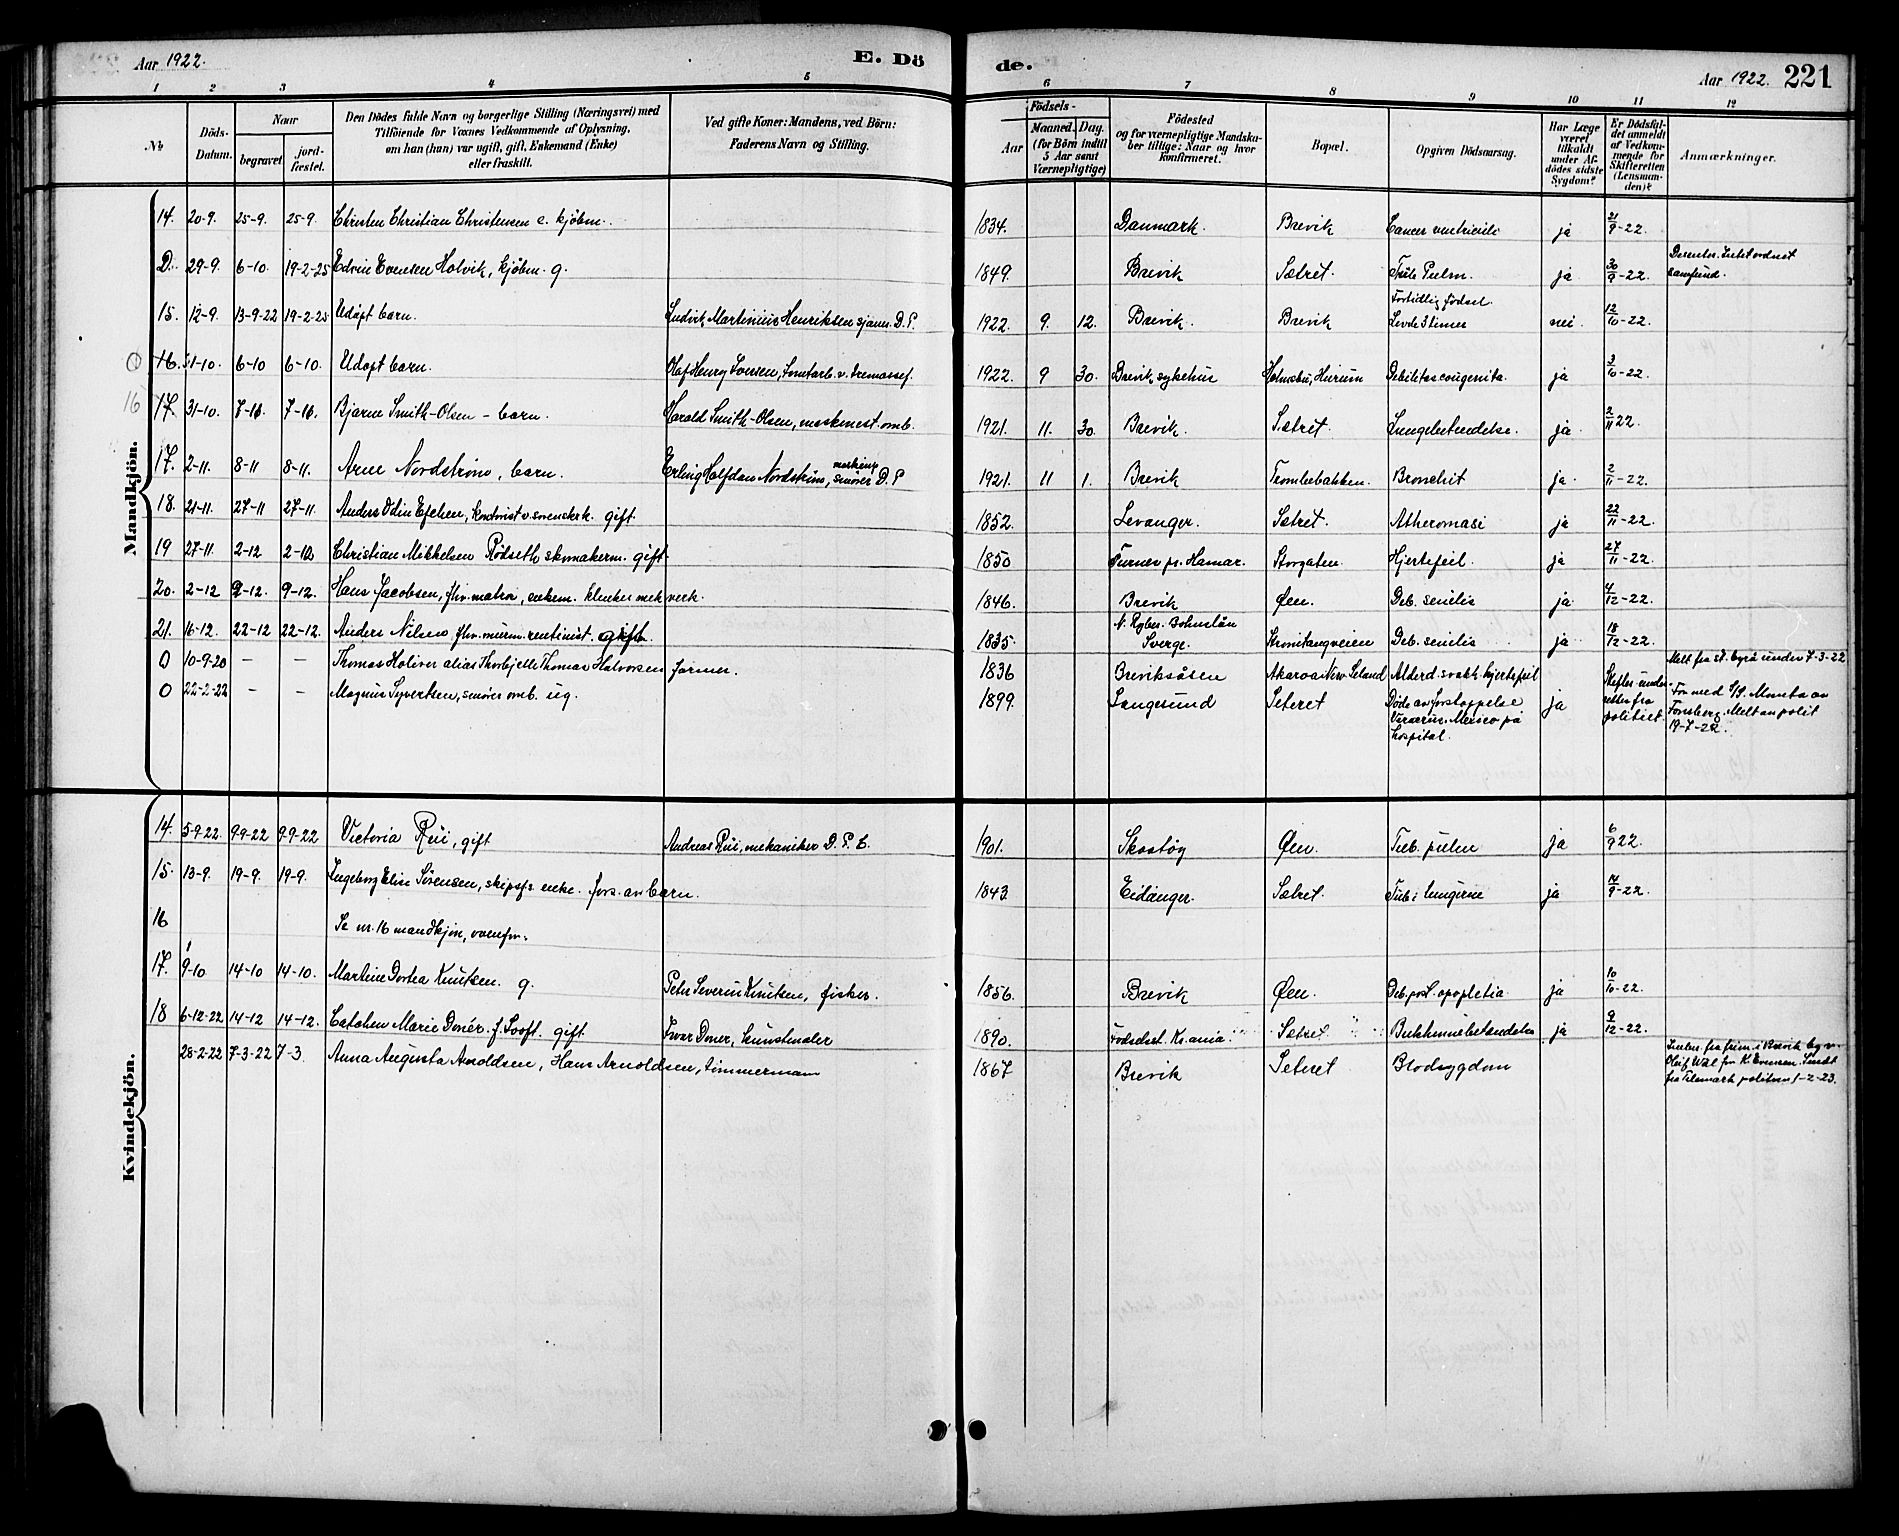 Aar 1922.
E. Dö
de.
Aar 1922. 221
1 2 3 4 5
6 7 8 9 10 11 12
No
Döds-Datum.
Naar
begravet
jord-fæstet.
Den Dödes fulde Navn og borgerlige Stilling (Næringsvei) med
Tilföiende for Voxnes Vedkommende af Oplysning,
om han (hun) var ugift, gift, Enkemand (Enke)
eller fraskilt.
Ved gifte Koner: Mandens, ved Börn:
Faderens Navn og Stilling.
Födsels-
Aar
Maaned. Dag.
(for Börn indtil
5 Aar samt
Værnepligtige)
Födested
og for værnepligtige Mandska-
ber tillige: Naar og hvor
konfirmeret.
Bopæl.
Opgiven Dödsaarsag.
Har Læge
været
tilkaldt
under Af-
dödes sidste
Sygdom?
Er Dödsfal-
det anmeldt
af Vedkom-
mende for
Skifteretten
(Lensman-
den)?
Anmærkninger.
Mandkjön.
14. 20-9. 25-9. 25-9. Christen Christian Christensen e. kjöbm. 1834. Danmark. Brevik Cancer ventriculi ja 21/9-22.
D. 29-9. 6-10. 19-2-25 Edvin Evensen Holvik, kjöbm. g. 1849. Brevik Sætret. Pulm. ja 30/9-22. samfund.
15. 12-9. 13-9-22 19-2-25 Udöpt barn. Ludvik Martinius Henriksen sjøm. D.P. 1922. 9. 12. Brevik. Brevik Fortidlig födsel. Levde 3 timer nei. 12/10-22.
16. 1-10. 6-10 6-10. Udöpt barn. Olaf Henry Iversen, 1922. 9 30. Brevik sykehus Holmsbu, Hurum Debilitas congenita. ja 3/10-22.
16 17. 31-10. 7-11. 7-11. Bjarne Smith-Olsen - barn. Harald Smith-Olsen, maskinist omb. 1921. 11. 30. Brevik. Sætret. Lungebetendelse. ja. 2/11 22.
17. 2-11. 8-11 8-11. Arne Nordström, barn. Erling Halfdan Nordström, maskin smører D.P 1921. 11 1. Brevik Tromlebakken. Bronchit ja. 2/11-22.
18. 21-11. 27-11 27-11. Anders Odin gift. 1852. Levanger. Sætret. Atheromasi ja 22/11-22.
19 27-11. 2-12 2-12 Christian Mikkelsen Rødseth skomakerm. gift. 1850 Furnes pr. Hamar. Storgaten. Hjertefeil. ja 27/11-22.
20. 2-12 9-12. 9-12. Hans Jacobsen, fhv. matros, enkem. klinker mek verk. 1846. Brevik Øen. Deb. senilis ja 4/12-22.
21. 16-12. 22-12 22-12. Anders Nilsen fhv. murm. rentenist. gift. 1835. Sverge. Strømtangveien Deb. senilis ja 18/12-22.
0 10-9-20 - - Thomas Holiver alias Thorbjelle Thomas Halvorsen farmer. 1836 Breviksåsen Akaroa New Seland Alderd. svakh. hjertefeil Melt fra st. byrå under 7-3-22
0 22-2-22 - - Magnus Syvertsen, smører omb. ug. 1899. Langesund Seteret Døde av forstoppelse Veracruz. Mexico på hospital. ja Skifter-underretter fra politiet. For med S/S. av Tønsberg. Melt av polit 19-7-22.
Kvindekjön.
14. 5-9-22. 9-9-22 9-9-22 Victoria Rui, gift Andreas Rui, mekaniker D.P.C. 1901. Skåtøy Øen. Tub. pulm ja 6/9 22.
15. 13-9. 19-9. 19-9. Ingeborg Elise Sørensen, skipsfr. enke. fors. av barn. 1843. Eidanger. Sætret. Tub. i lungerne ja 14/9-22.
16 Se nr. 16 mandkjøn, ovenfor.
17. 9-10 14-10 14-10. Martine Dortea Knutsen. g. Peter Severin Knutsen, fisker. 1856. Brevik Øen. Deb. post. apopletia ja 10/10-22.
18 6-12-22 14-12 14-12. Catchen Marie Donér. f. Looft. gift Ivar Doner, kunstmaler 1890. Fødselsst. Kr.ania Sætret Bukhinnebetendelse ja 9/12-22.
28-2-22 7-3-22 7-3. Anna Augusta Arnoldsen, Hans Arnoldsen, timmermann 1867 Brevik Seteret Blodsygdom fra Telemark politiem 1-2-23.